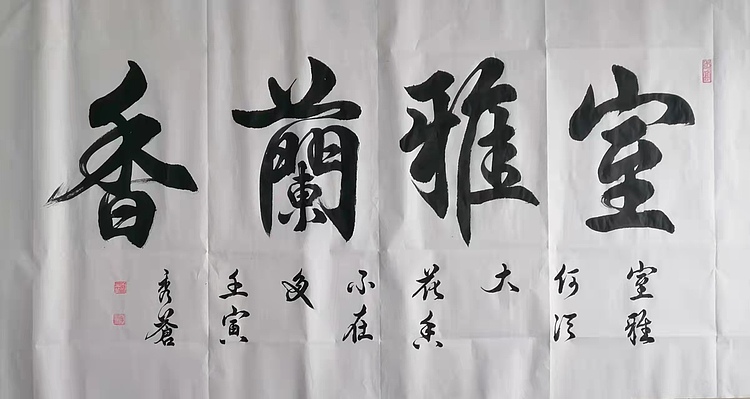 室雅蘭香
室雅
何须
大
花香
不在
多
壬寅
秀蒼